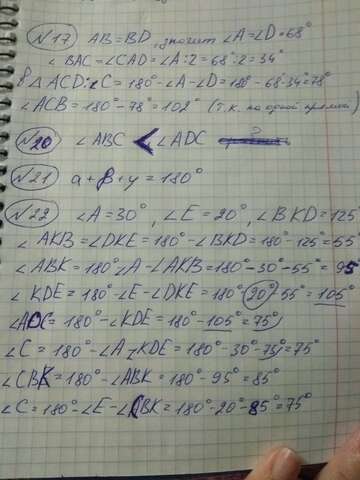 №17 AB=BD, значит ∠A=∠D=68°
∠BAC=∠CAD=∠A:2=68°:2=34°
В △ACD: ∠C=180°-∠A-∠D=180°-68°-34°=78°
∠ACB=180°-78°=102° (т.к. на одной прямой)
№20 ∠ABC < ∠ADC
№21 a+β+y=180°
№22 ∠A=30°, ∠E=20°, ∠BKD=125°
∠AKB=∠DKE=180°-∠BKD=180°-125°=55°
∠ABK=180°-∠A-∠AKB=180°-30°-55°=95°
∠KDE=180°-∠E-∠DKE=180°-20°-55°=105°
∠ADC=180°-∠KDE=180°-105°=75°
∠C=180°-∠A-KDE=180°-30°-75°=75°
∠CBK=180°-∠ABK=180°-95°=85°
∠C=180°-∠E-∠CBK=180°-20°-85°=75°